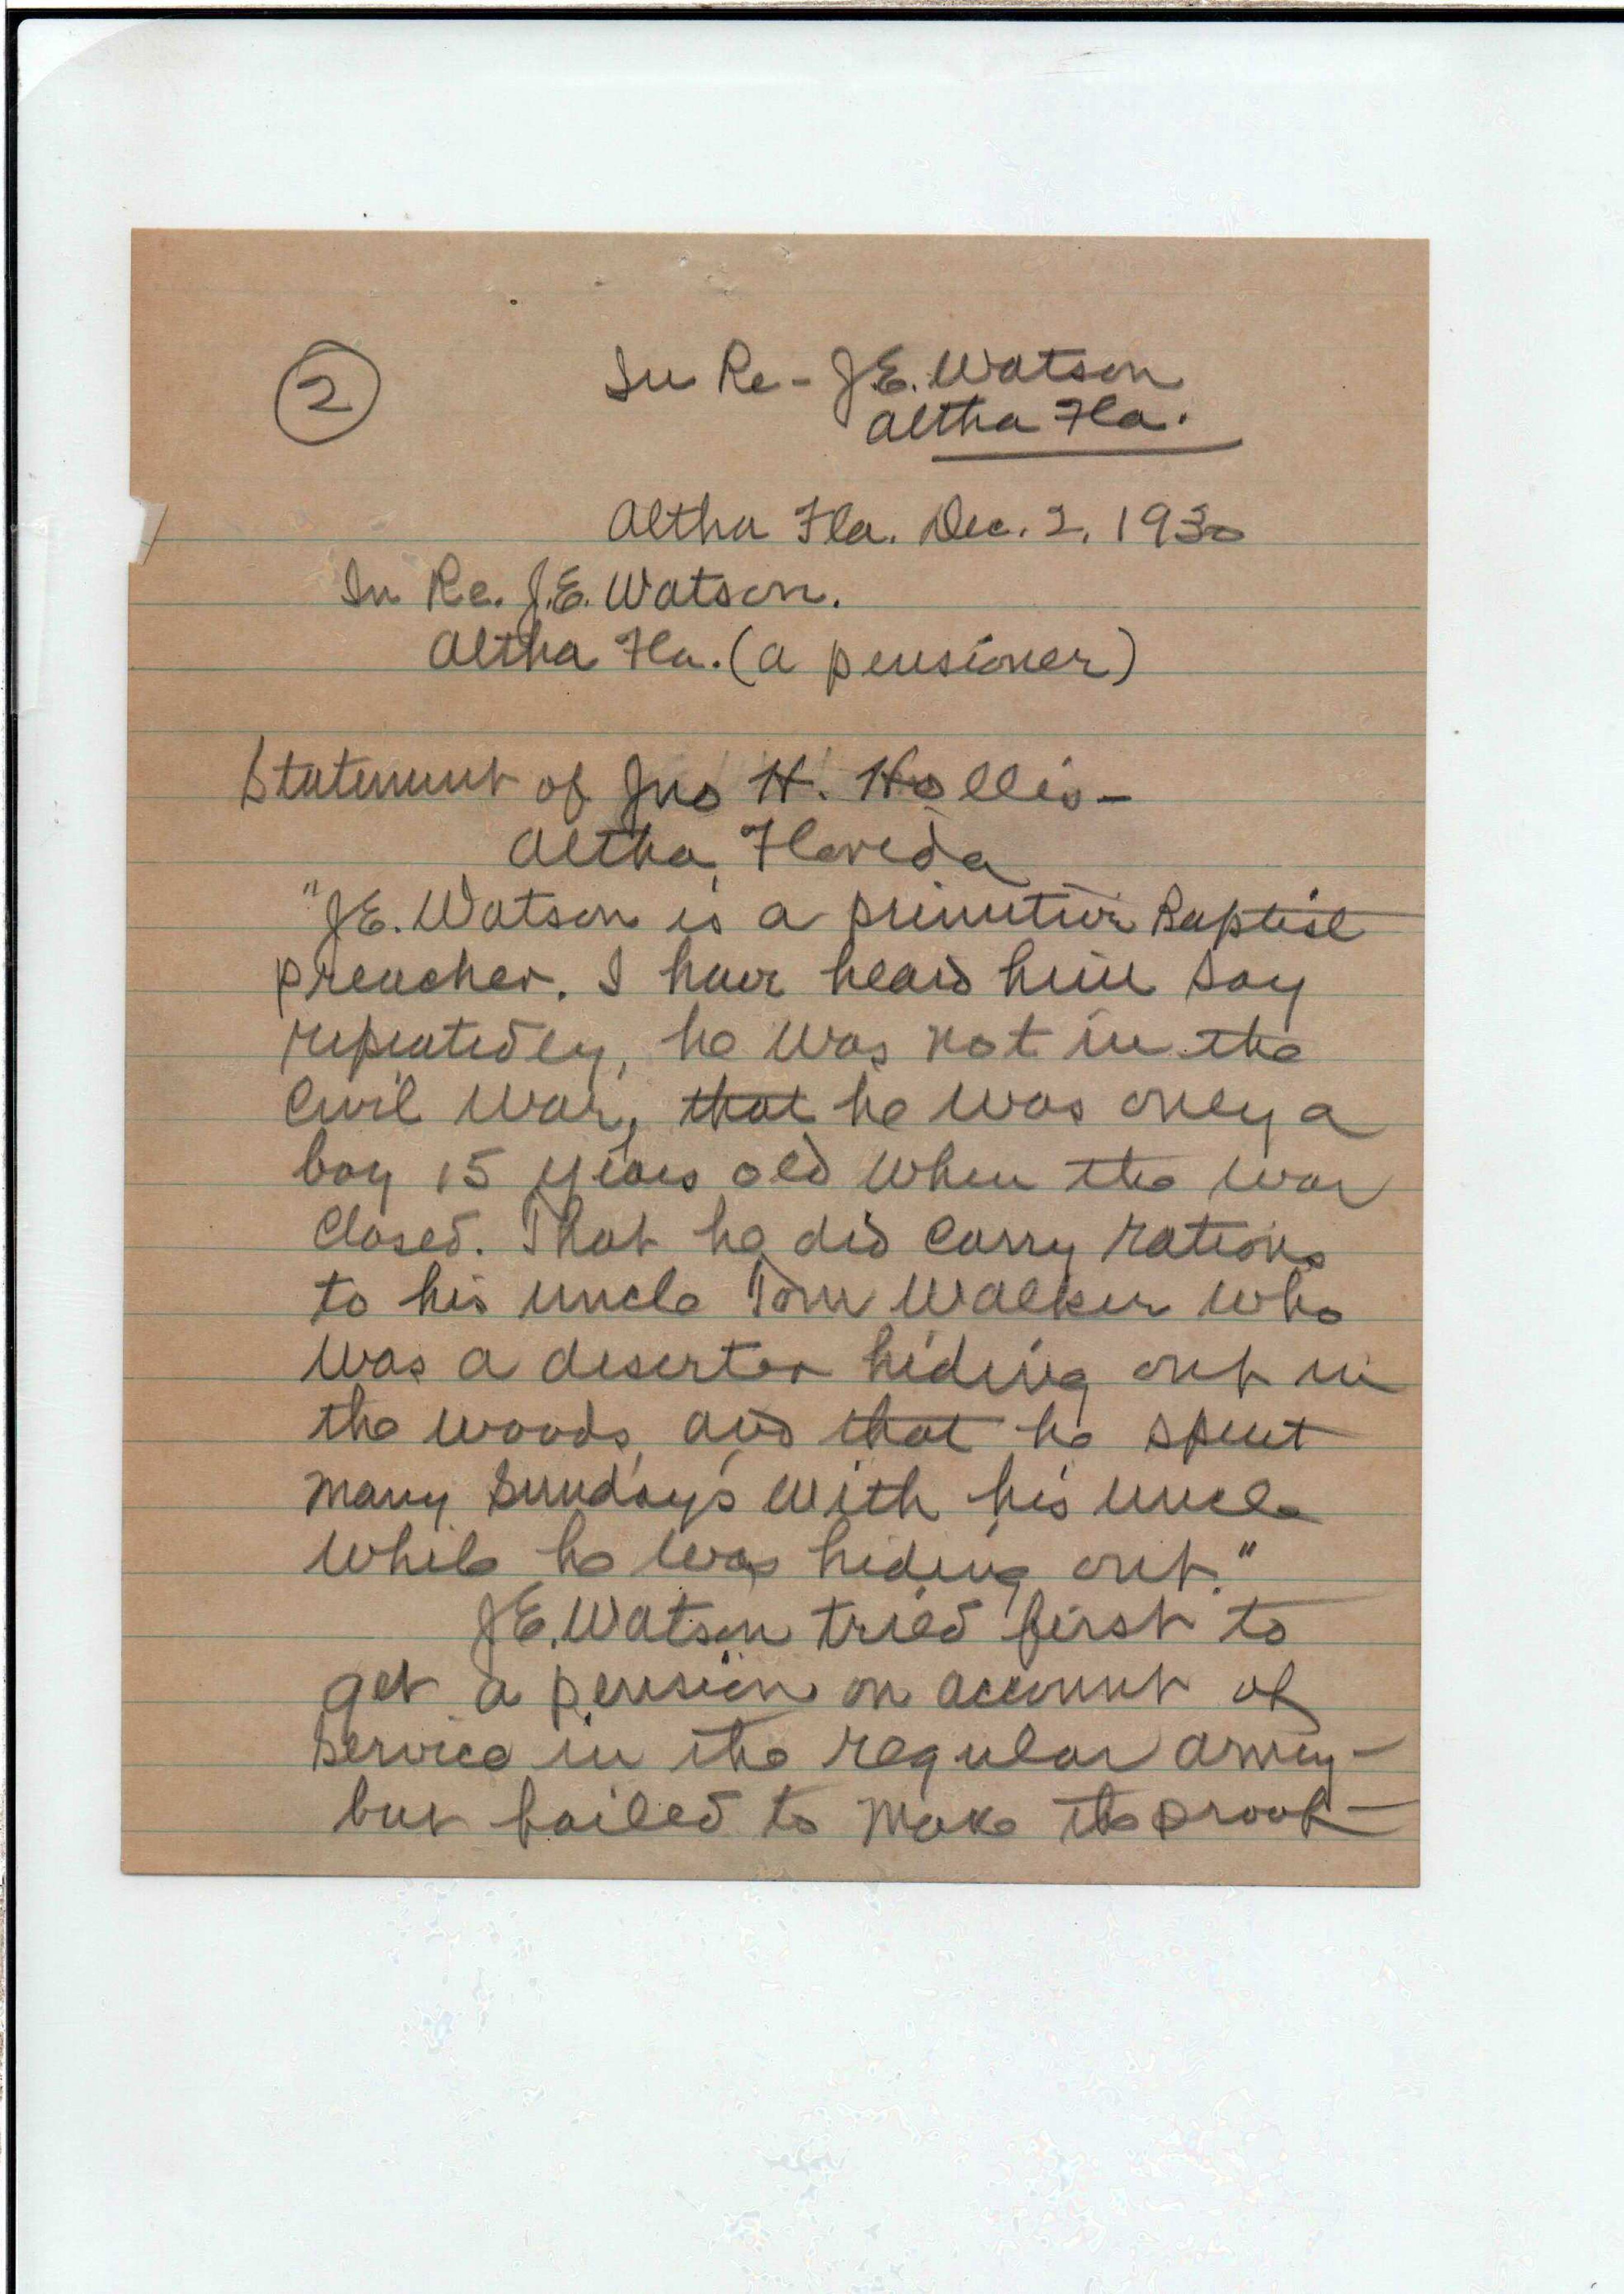 2
In Re - J.E. Watson
Altha Fla.
Altha Fla. Dec. 2, 1930
In Re. J.E. Watson.
Altha Fla. (a pensioner)
Statement of Jno H. Hollis -
Altha, Florida
"J.E. Watson is a primitive Baptist
preacher. I have heard him say
repeatedly, he was not in the
Civil War, that he was only a
boy 15 years old when the war
closed. That he did carry rations
to his uncle Tom Walker who
was a deserter hiding out in
the woods, and that he spent
many Sunday's with his uncle
while he was hiding out."
J.E. Watson tried first to
get a pension on account of
service in the regular army -
but failed to make the proof -